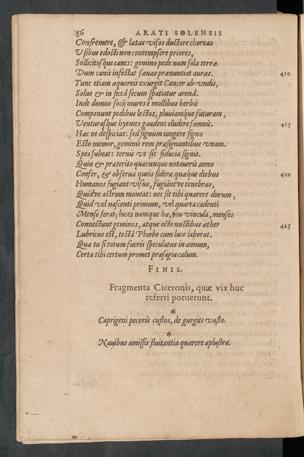 56 ARATI SOLENSIS
Confremere, & latas visos ductare choreas
Vsibus edocti non contempsere priores,
Sollicitosque canes: gemino pede nam sola terræ
Dum canis infestat sæuas prænuntiat auras. 410
Tunc etiam aquoreis exurgit Cancer ab vndis,
Solus & in sicca secum spatiatur arena.
Inde domus socij mures è mollibus herbis
Componunt pedibus lectos, pluuiamque futuram,
Venturasque hyemes gaudent eludere somnis. 415
Hæc ne despicias: sed signum iungere signo
Esto memor, geminis rem præsignantibus vnam.
Spes subeat: ternis vt sit fiducia signis.
Quin & præterito quacumque notaueris anno
Confer, & obserua queis sidera quæque diebus 420
Humanos fugiant visus, fugiántve tenebras,
Quidve astrum moneat: nec sit tibi quærere durum,
Quid vel nascenti primum, vel quarta cadenti
Mense ferat; luces namque hæ, ceu vincula, menses
Connectunt geminos, atque octo noctibus æther 425
Lubricus est, tectâ Phœbe cum luce laborat.
Quæ tu si totum fueris speculatus in annum,
Certa tibi certum promet præsagia cælum.
FINIS.
Fragmenta Ciceronis, quæ vix huc
referri potuerunt.
*
Caprigeni pecoris custos, de gurgite vasto.
*
Nauibus amissis fluitantia quærere aplustra.